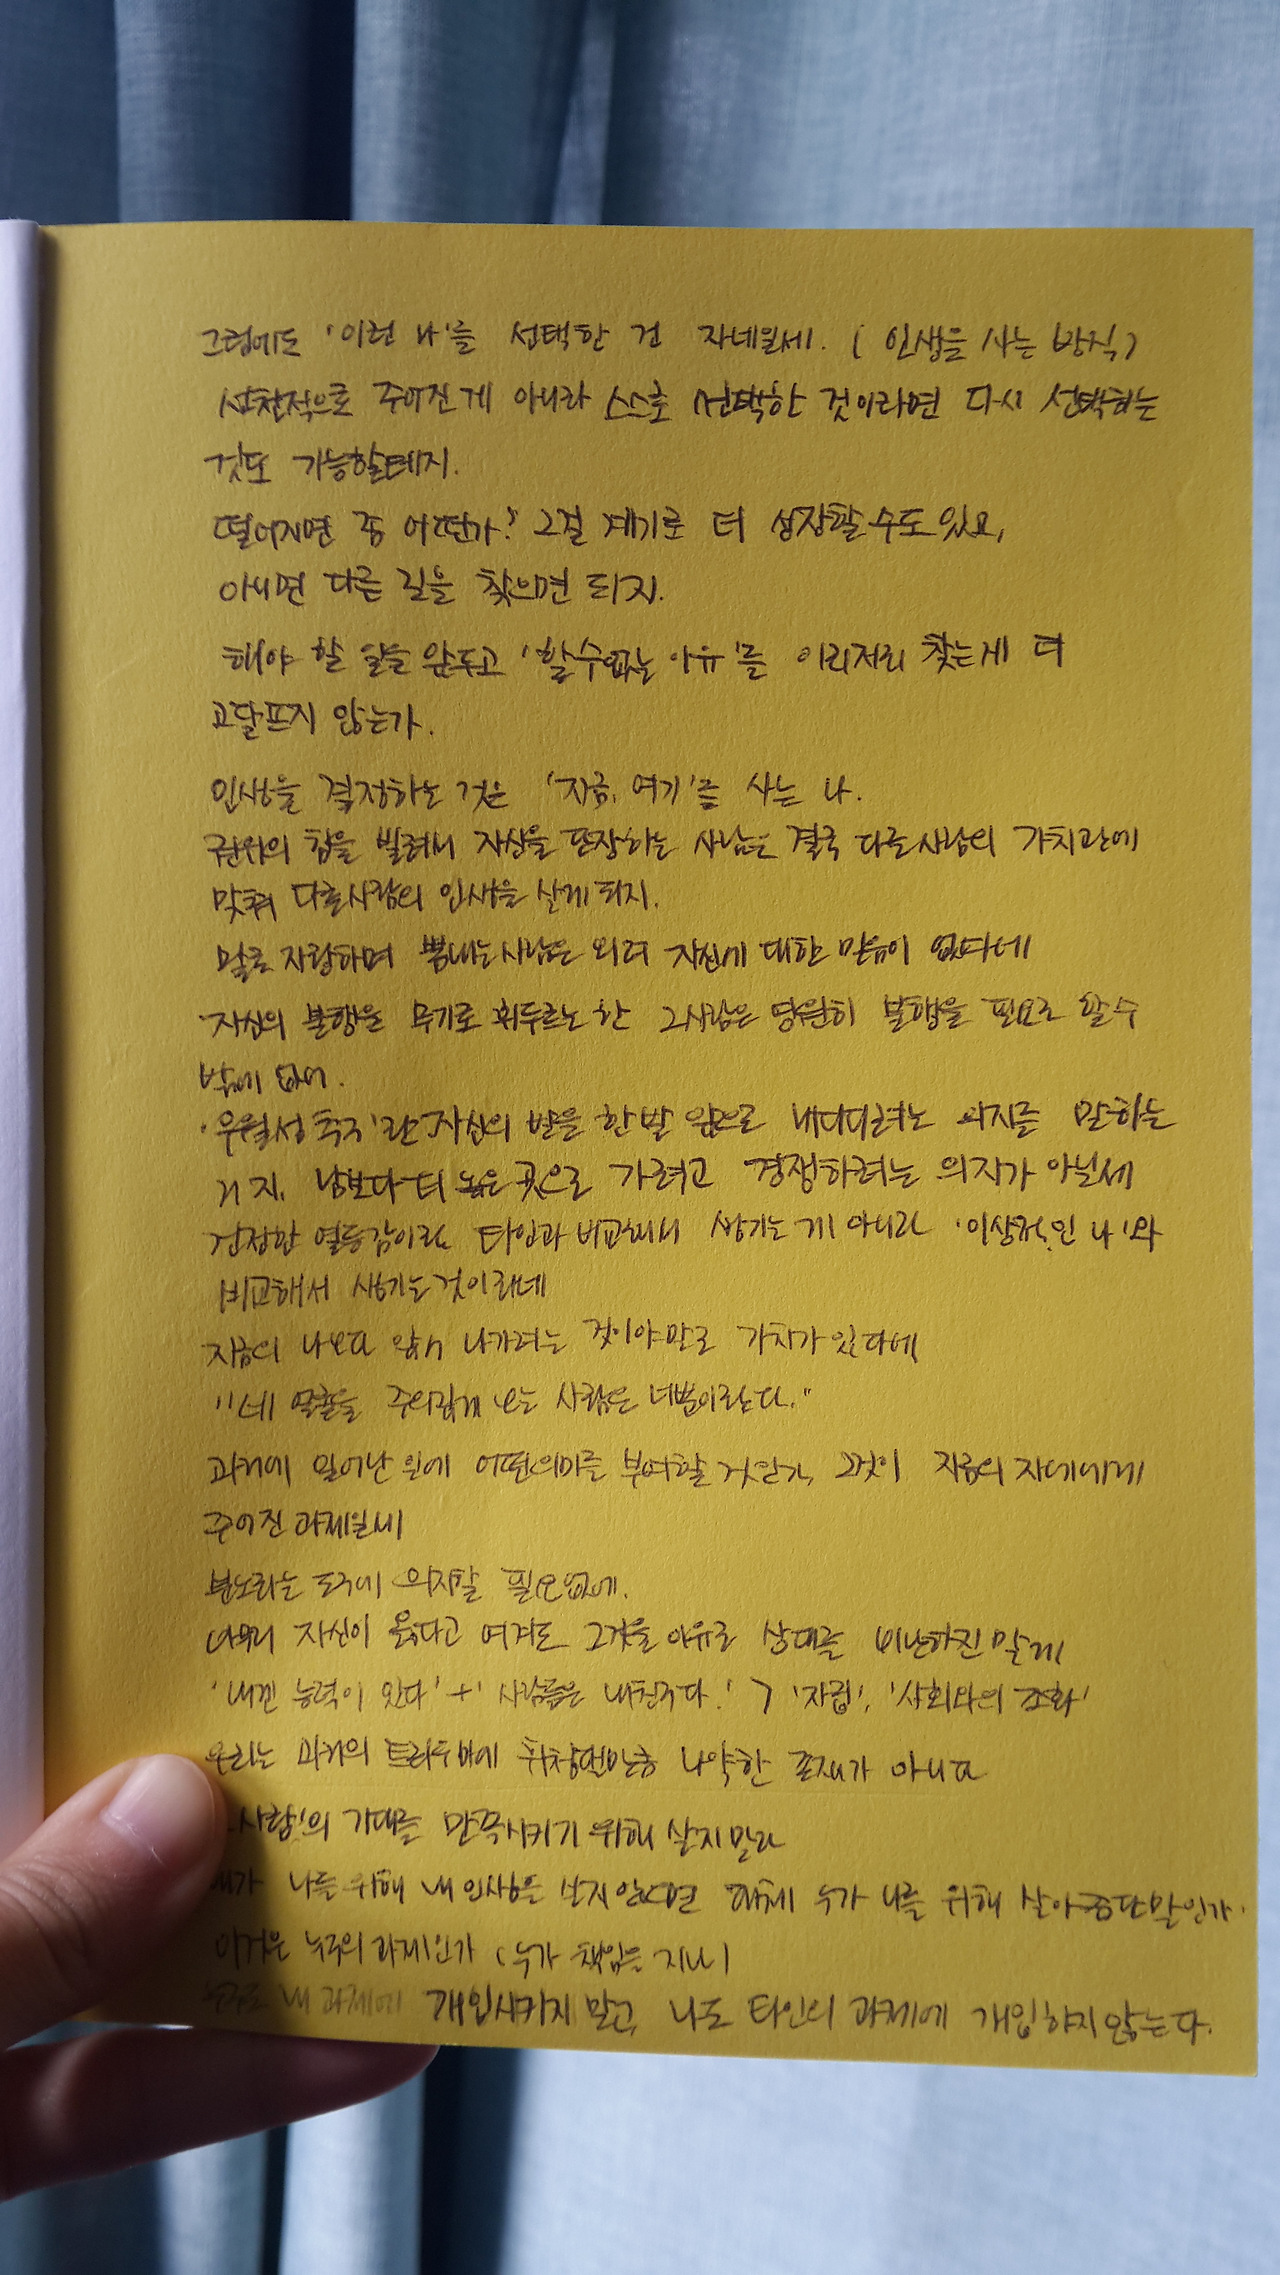 그럼에도 '이런 나'를 선택한 건 자네일세. ( 인생을 사는 방식 )
선천적으로 주어진 게 아니라 스스로 선택한 것이라면 다시 선택하는
것도 가능할테지.
떨어지면 좀 어떤가? 그걸 계기로 더 성장할 수도 있고,
아니면 다른 길을 찾으면 되지.
해야 할 일을 앞두고 '할 수 없는 이유'를 이리저리 찾는게 더
고달프지 않는가.
인생을 결정하는 것은 '지금, 여기'를 사는 나.
권위의 힘을 빌려서 자신을 포장하는 사람은 결국 다른사람의 가치관에
맞춰 다른사람의 인생을 살게 되지.
말로 자랑하며 뽐내는 사람은 외려 자신에 대한 믿음이 없다네
자신의 불행을 무기로 휘두르는 한 그사람은 영원히 불행을 필요로 할 수
밖에 없어.
'우월성 추구'란 자신의 발을 한 발 앞으로 내디디려는 의지를 말하는
거지, 남보다 더 높은 곳으로 가려고 경쟁하려는 의지가 아닐세
건전한 열등감이란 타인과 비교해서 생기는 게 아니라 '이상적인 나'와
비교해서 생기는 것이라네
지금의 나보다 앞서 나가려는 것이야말로 가치가 있다네
"네 얼굴을 주의깊게 보는 사람은 너뿐이란다."
과거에 일어난 일에 어떤 의미를 부여할 것인가, 그것이 지금의 자네에게
주어진 과제일세
분노라는 도구에 의지할 필요 없네.
아무리 자신이 옳다고 여겨도 그것을 이유로 상대를 비난하진 말게
'내겐 능력이 있다' + '사람들은 내 친구다.' > '자립', '사회와의 조화'
우리는 과거의 트라우마에 휘청댈만큼 나약한 존재가 아니다
사람'의 기대를 만족시키기 위해 살지 말라
내가 나를 위해 내 인생을 살지 않으면 대체 누가 나를 위해 살아준단 말인가.
이것은 누구의 과제인가 ( 누가 책임을 지나 )
내 과제에 개입시키지 말고, 나도 타인의 과제에 개입하지 않는다.